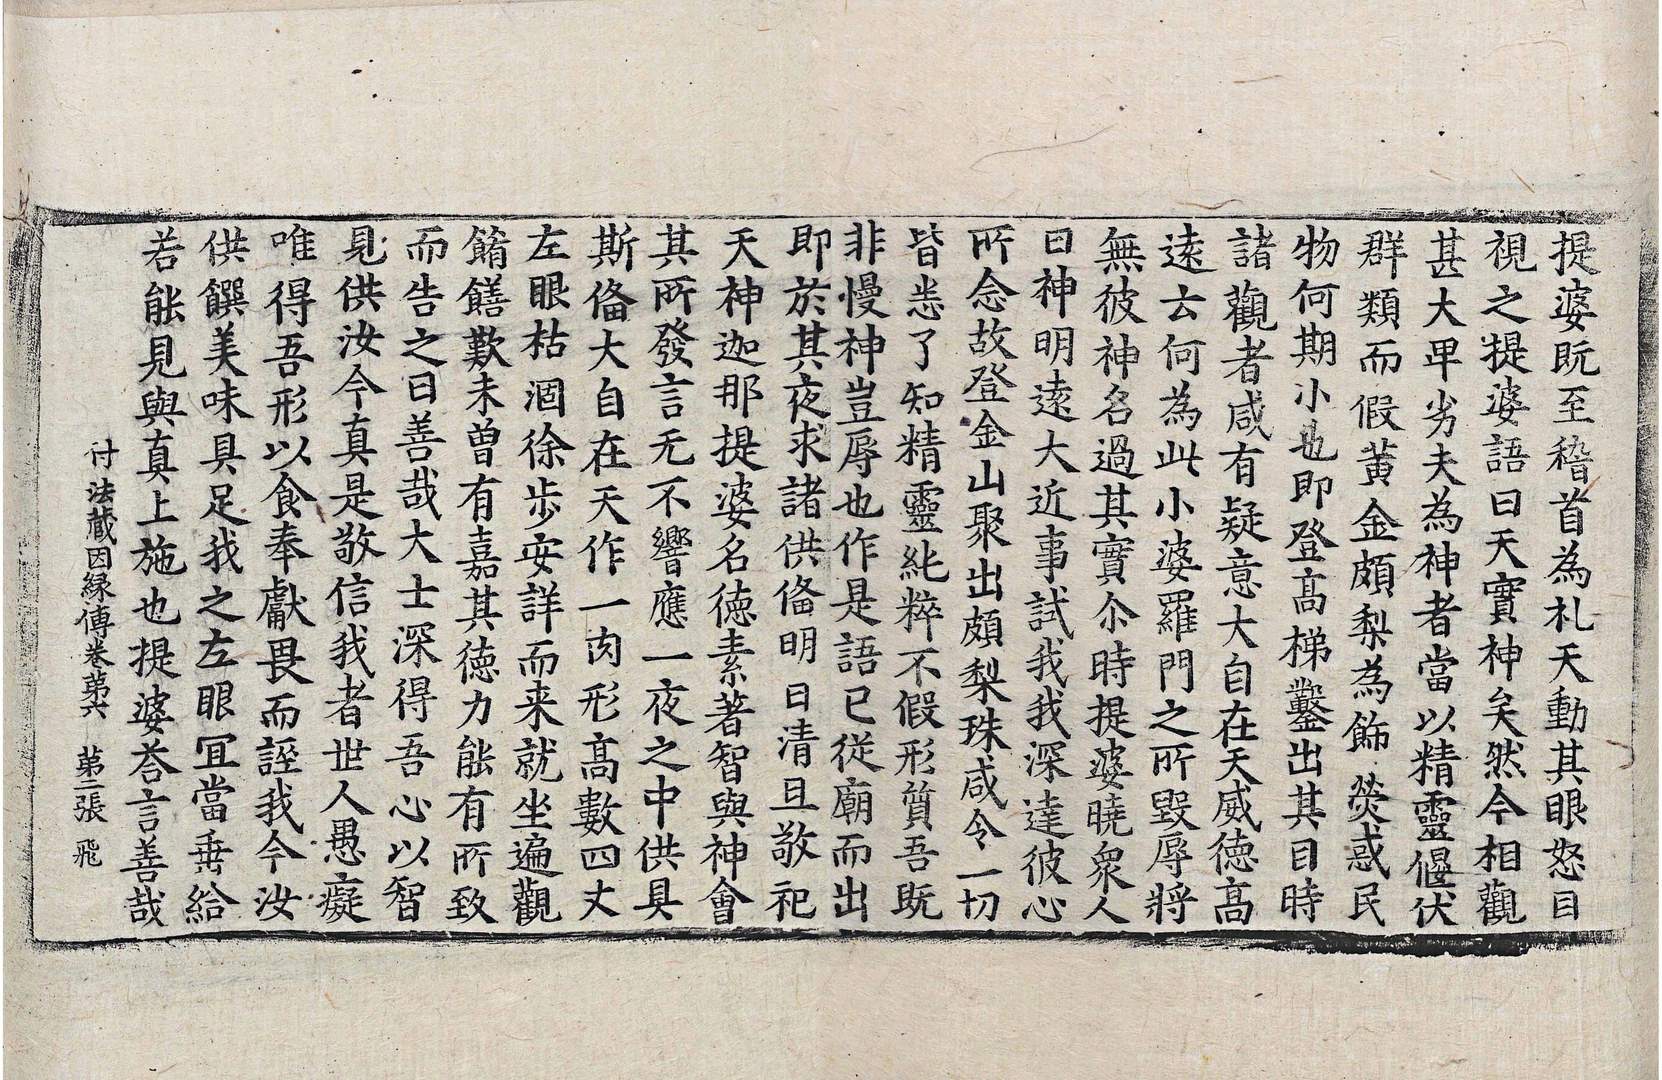 提婆既至稽首為礼天動其眼怒目
視之提婆語曰天實神矣然今相觀
甚大卑劣夫為神者當以精靈偃伏
群類而假黃金頗梨為飾熒惑民
物何期小也即登髙梯鑿出其目時
諸觀者咸有疑意大自在天威徳髙
遠云何為此小婆羅門之所毀辱將
無彼神名過其實尒時提婆曉衆人
曰神明遠大近事試我我深達彼心
所念故登金山聚出頗梨珠咸令一切
皆悉了知精靈純粹不假形質吾既
非慢神豈辱也作是語已従廟而出
即於其夜求諸供俻明日清旦敬祀
天神迦那提婆名徳素著智與神會
其所發言无不響應一夜之中供具
斯俻大自在天作一肉形髙數四丈
左眼枯涸徐歩安詳而来就坐遍觀
餚饍歎未曽有嘉其徳力能有所致
而告之曰善哉大士深得吾心以智
見供汝今真是敬信我者世人愚癡
唯得吾形以食奉獻畏而誣我今汝
供饌美味具足我之左眼冝當垂給
若能見與真上施也提婆荅言善哉
付法蔵因縁傳巻苐六　苐二張　飛